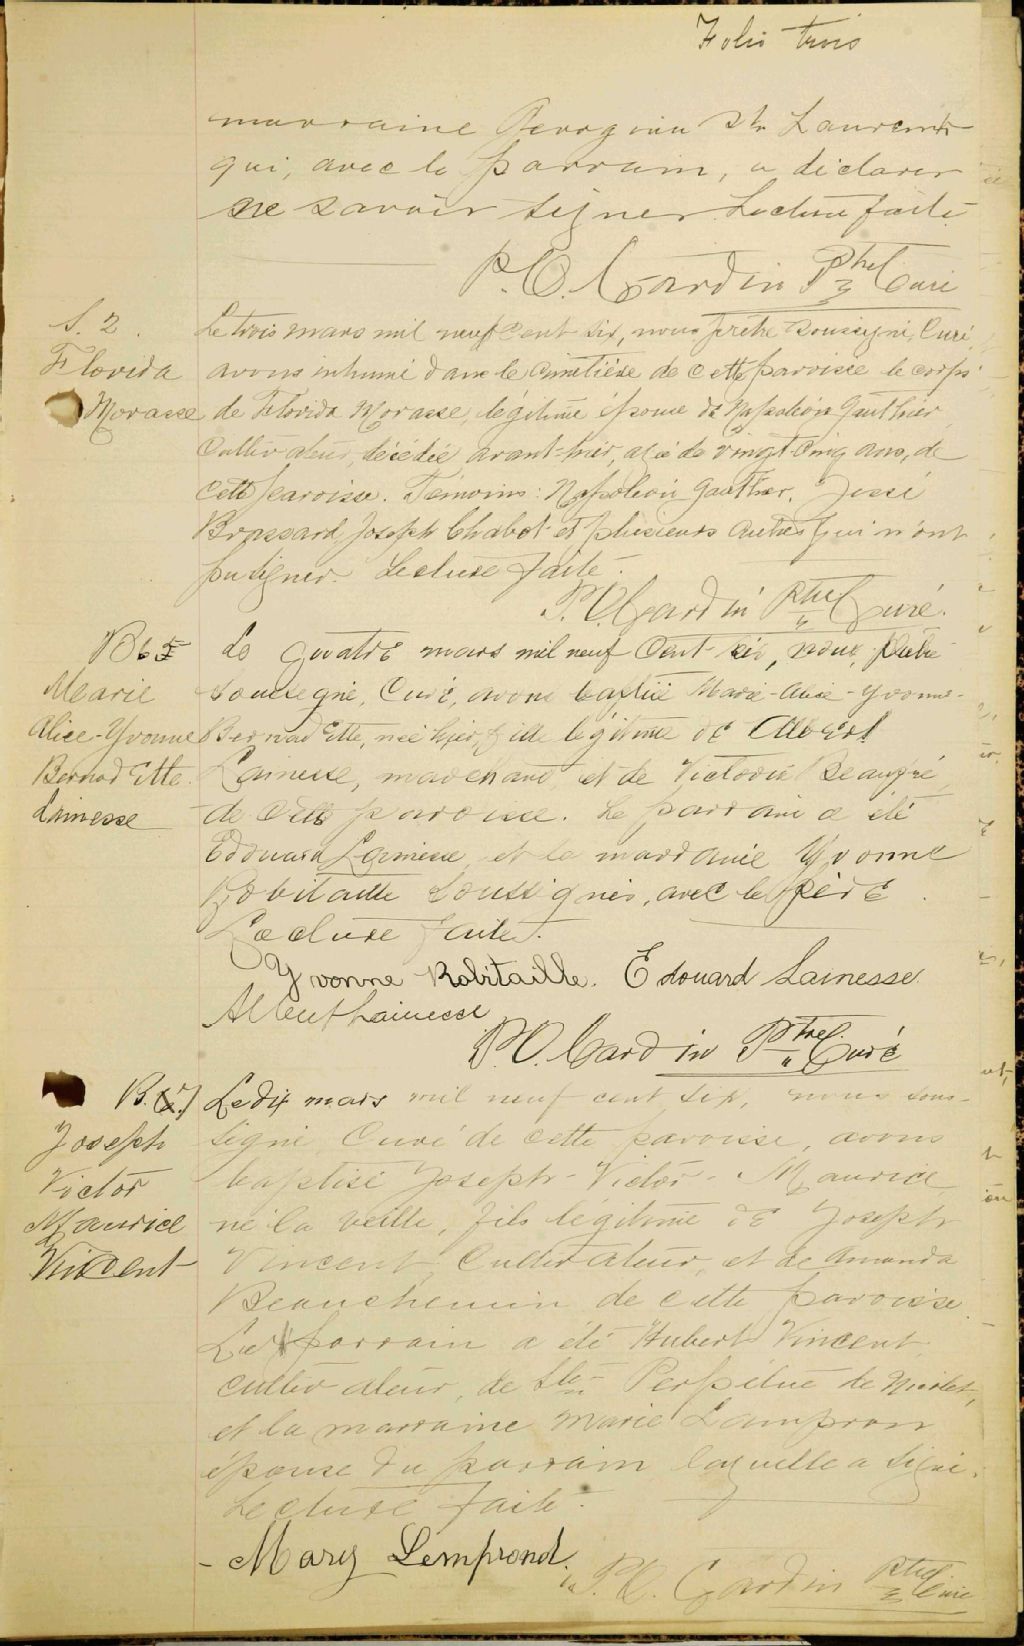 Folio trois
marraine Georgina St Laurent
qui, avec le parrain, a déclarer
ne savoir signer. Lecture faite
P. O. Cardin Ptre Curé
S. 2.
Florida
Morasse
Le trois mars mil neuf cent six, nous prêtre soussigné, Curé,
avons inhumé dans le cimetière de cette paroisse le corps
de Florida Morasse, légitime épouse de Napoléon Gauthier,
Cultivateur, décédée avant-hier, agée de vingt cinq ans, de
cette paroisse. Témoins: Napoléon Gauthier, Jessé
Brassard, Joseph Chabot et plusieurs autres qui n'ont
pu signer. Lecture faite.
P. O. Cardin Ptre Curé.
B 6
Marie
Alice-Yvonne
Bernadette
Lainesse
Le quatre mars mil neuf cent six, nous, prêtre
soussigné, Curé, avons baptisé Marie-Alice-Yvonne-
Bernadette, née hier, fille légitime de Albert
Lainesse, marchand, et de Victoria Beaupré,
de cette paroisse. Le parrain a été
Edouard Lainesse et la marraine Yvonne
Robitaille soussignés, avec le père.
Lecture faite.
Yvonne Robitaille. Edouard Lainesse
Albert Lainesse
P. O. Cardin Ptre. Curé
B. 7
Joseph
Victor
Maurice
Vincent
Le dix mars mil neuf cent six, nous sous-
signé Curé de cette paroisse, avons
baptisé Joseph-Victor-Maurice,
né la veille, fils légitime de Joseph
Vincent, Cultivateur, et de Amanda
Beauchemin de cette paroisse.
Le parrain a été Hubert Vincent,
cultivateur, de Ste Perpétue de Nicolet,
et la marraine Marie Lampron
épouse du parrain laquelle a signé.
Lecture faite.
- Mary Lemprond.
P. O. Cardin Ptre Curé